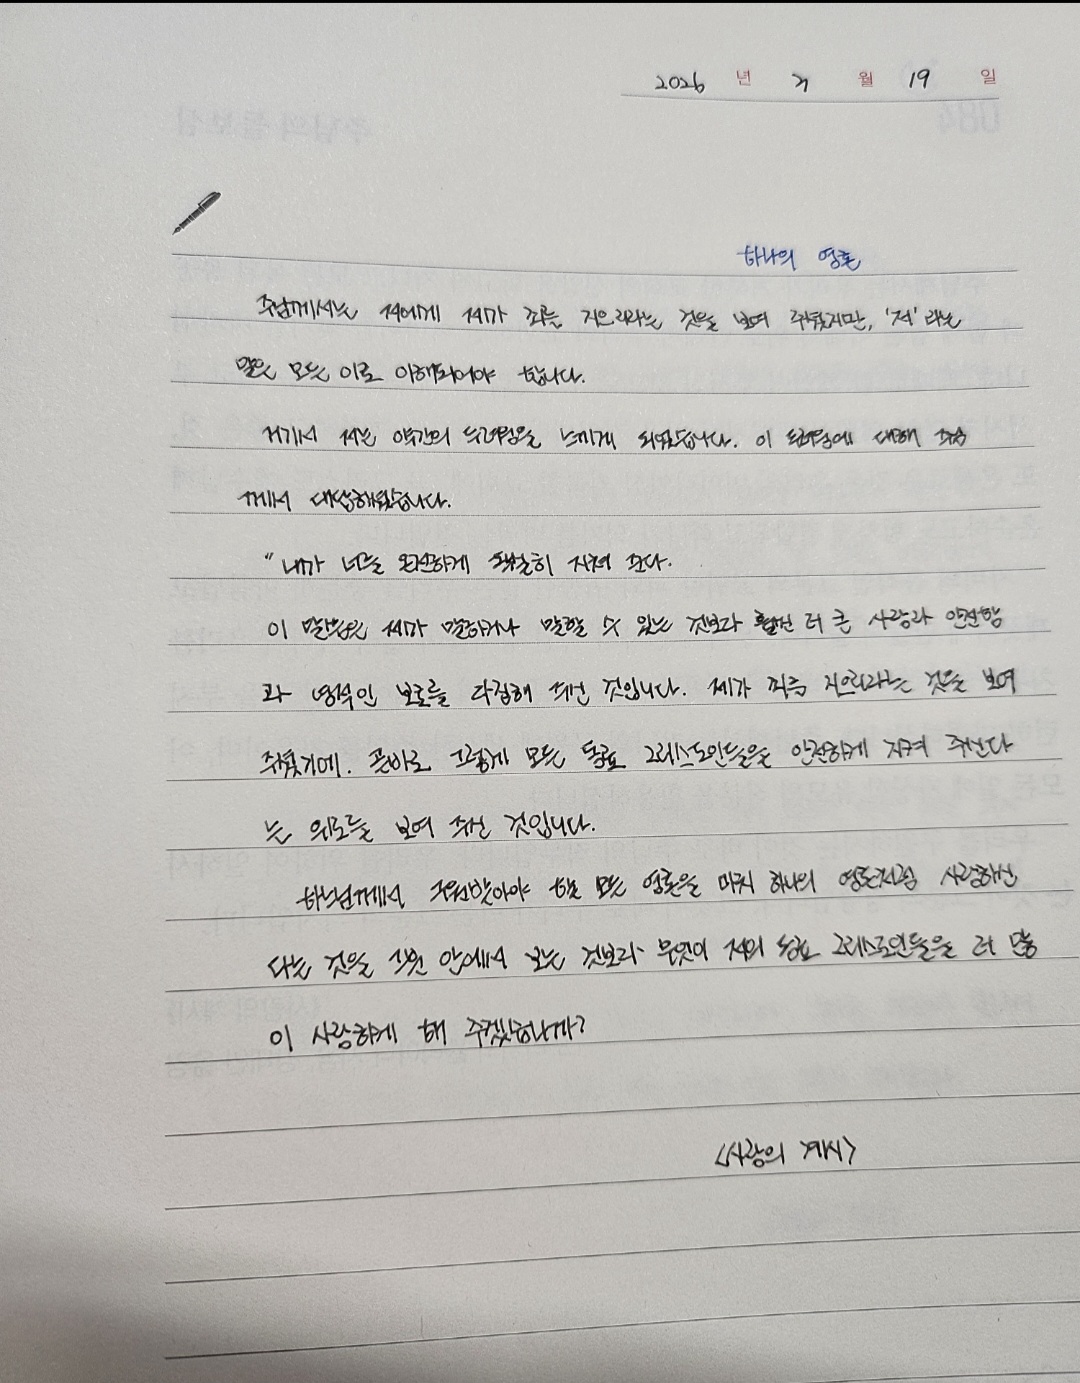 2026 년 2 월 19 일
하나의 영혼
주님께서는 저에게 제가 죄를 지으리라는 것을 보여 주셨지만, '저'라는
말은 모든 이로 이해되어야 합니다.
여기서 저는 약간의 두려움을 느끼게 되었습니다. 이 두려움에 대해 주님
께서 대답해주셨습니다.
"내가 너를 온전하게 확실히 지켜 준다.
이 말씀은 제가 말하거나 말할 수 있는 것보다 훨씬 더 큰 사랑과 안전함
과 영적인 보호를 다짐해 주신 것입니다. 제가 죄를 지으리라는 것을 보여
주셨기에. 곧바로 그렇게 모든 동료 그리스도인들을 안전하게 지켜 주신다
는 위로를 보여 주신 것입니다.
하느님께서 구원받아야 할 모든 영혼을 마치 하나의 영혼처럼 사랑하신
다는 것을 구원 안에서 보는 것보다 무엇이 저의 동료 그리스도인들을 더 많
이 사랑하게 해 주겠습니까?
<사랑의 계시>